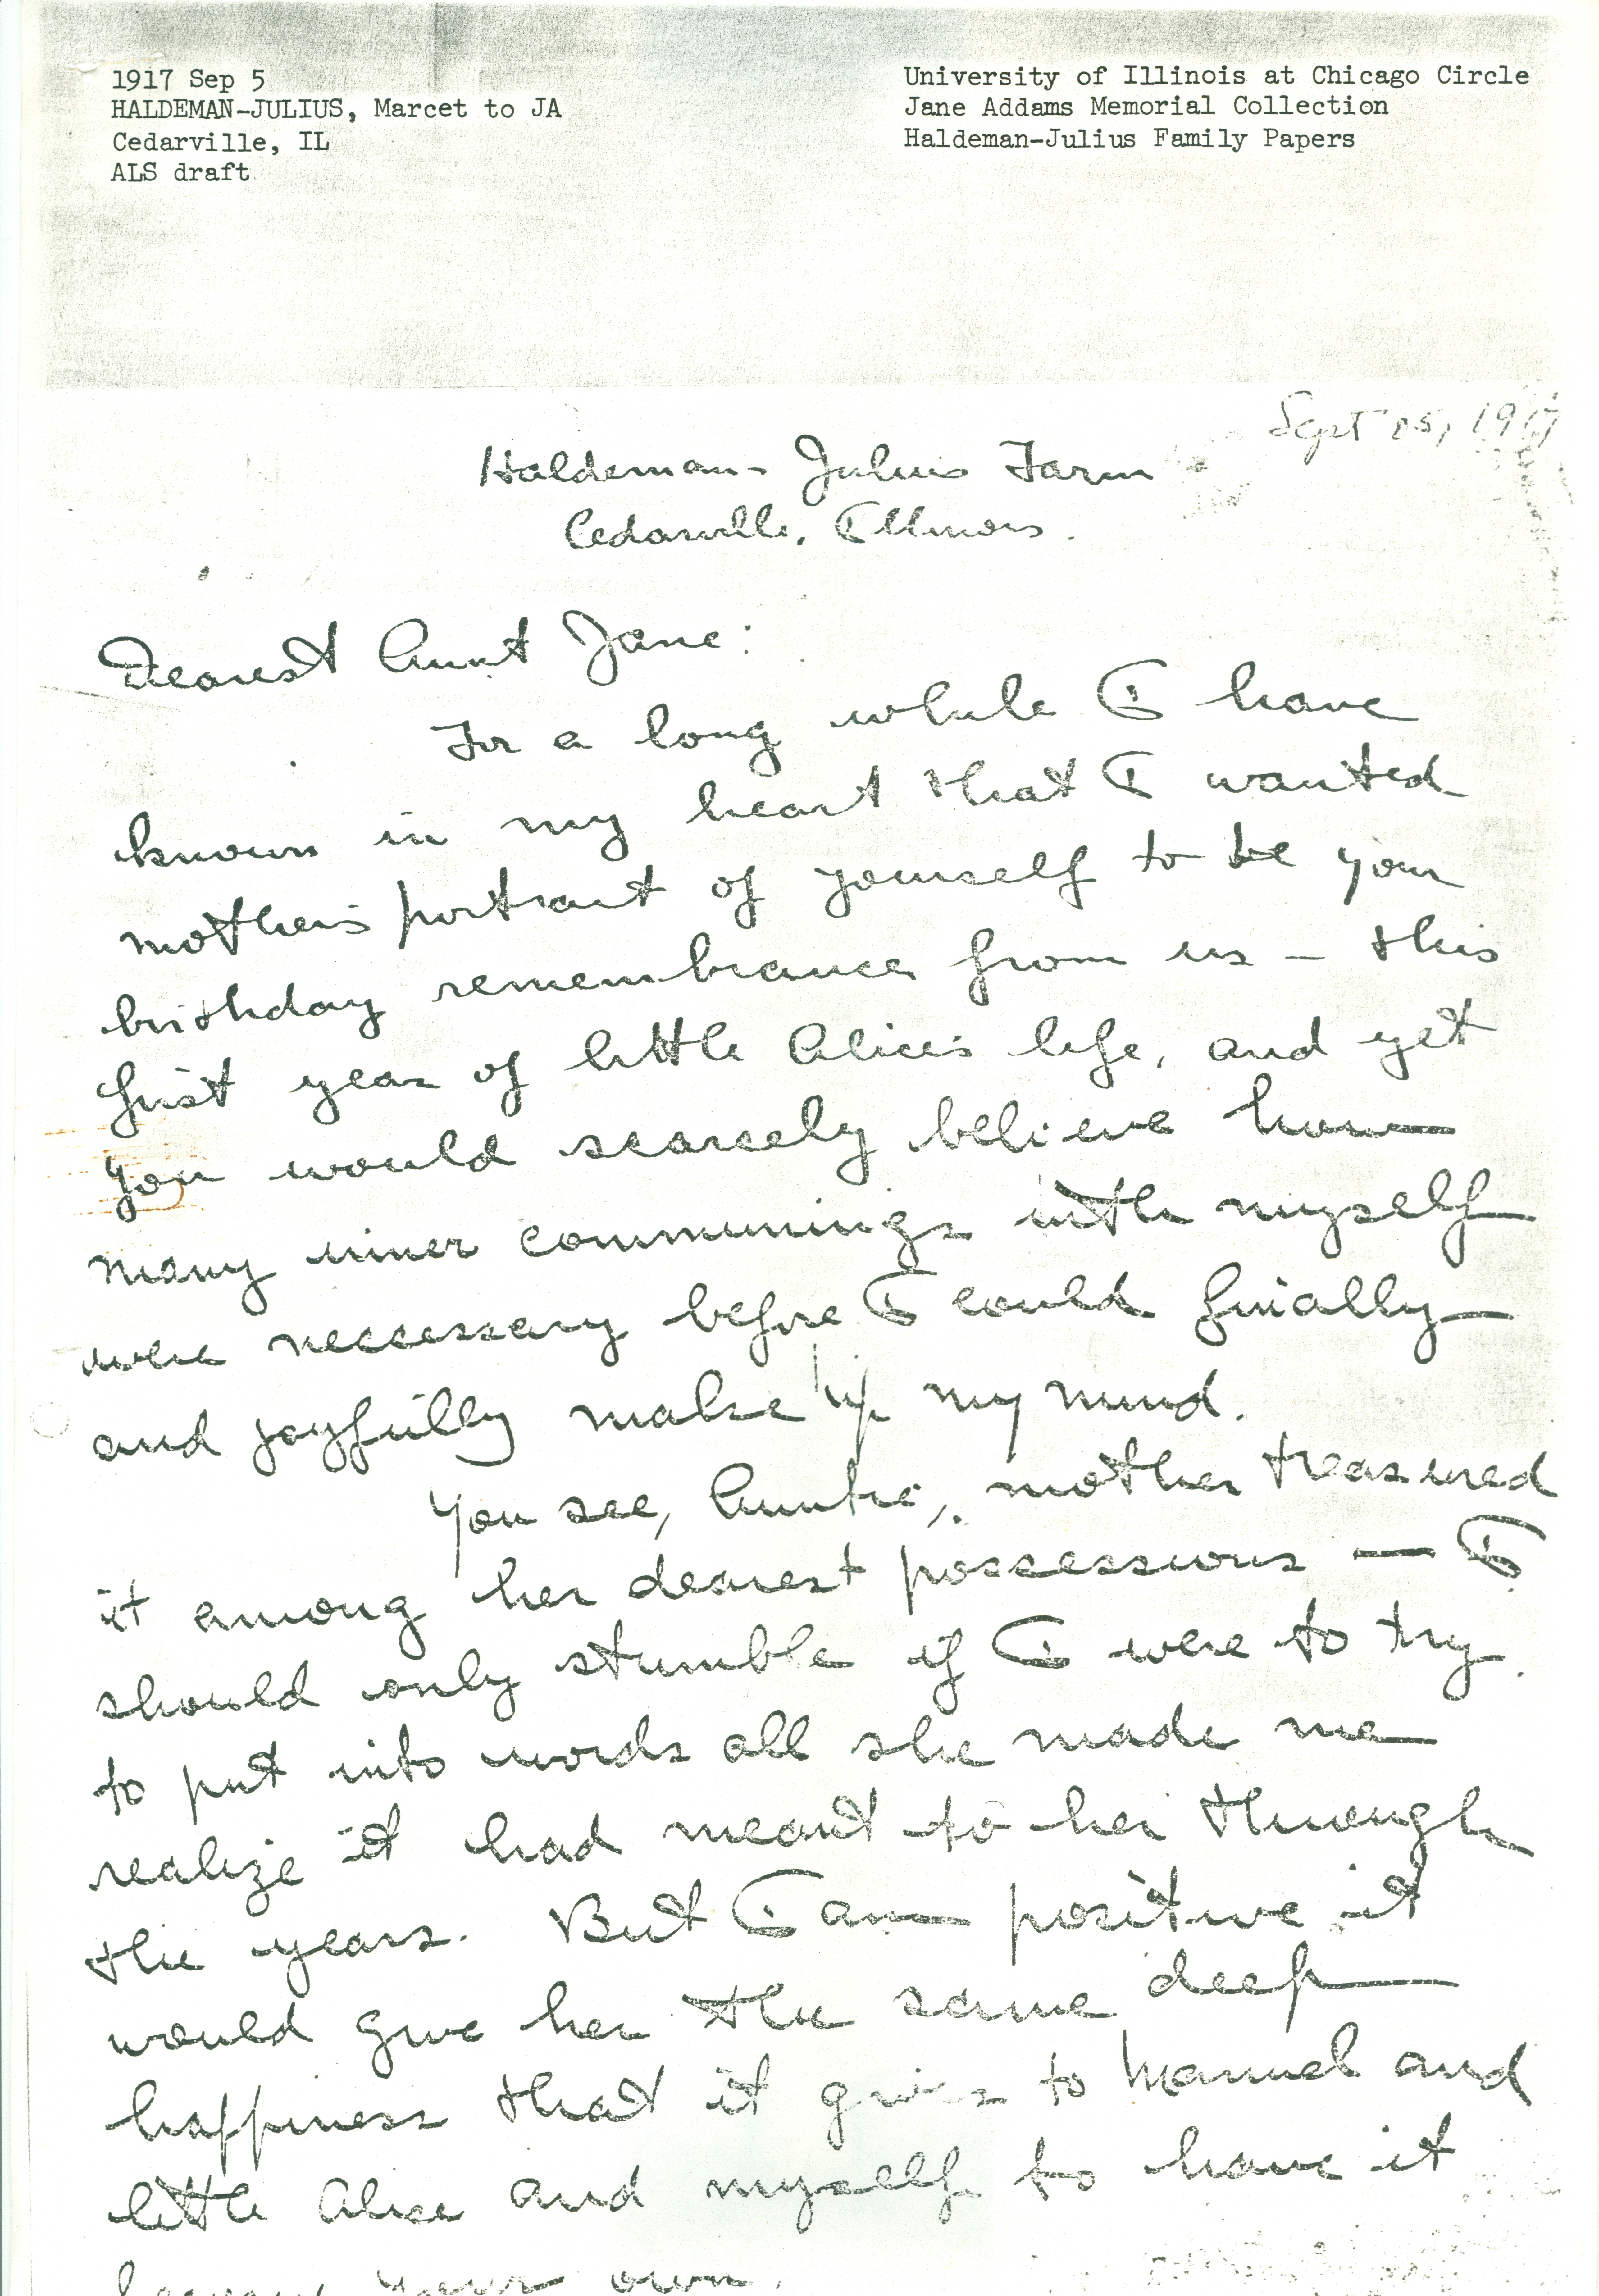 1917 Sep 5
HALDEMAN-JULIUS, Marcet to JA
Cedarville, IL
ALS draft
University of Illinois at Chicago Circle
Jane Addams Memorial Collection
Haldeman-Julius Family Papers
Sept 5, 1917
Haldeman-Julius Farm
Cedarville, Illinois.
Dearest Aunt Jane:
For a long while I have
known in my heart that I wanted
mother's portrait of yourself to be your
birthday remembrance from us – this
first year of little Alice's life, and yet
you would scarcely believe how
many inner communings with myself
were neccessary before I could finially
and joyfully make up my mind.
You see, Auntie, mother treasured
it among her dearest possessions — I
should only stumble if I were to try
to put into words all she made me
realize it had meant to her through
the years. But I am positive it
would give her the same deep
happiness that it gives to Manuel and
little Alice and myself to have it
your own.